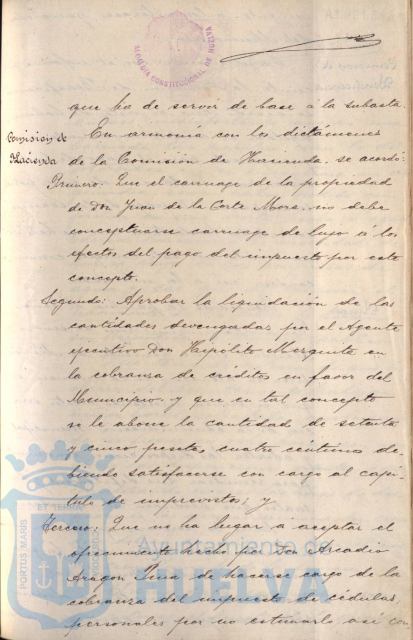 ALCALDIA CONSTITUCIONAL DE HUELVA
que ha de servir de base a la subasta.
Comision de Hacienda
En armonía con los dictámenes
de la Comisión de Hacienda, se acordó:
Primero. Que el carruage de la propiedad
de Don Juan de la Corte Mora, no debe
conceptuarse carruage de lujo á los
efectos del pago del impuesto por este
concepto.
Segundo: Aprobar la liquidación de las
cantidades devengadas por el Agente
ejecutivo Don Hipólito Mezquita en
la cobranza de créditos en favor del
Municipio y que en tal concepto
se le abone la cantidad de setenta
y cinco pesetas cuatro céntimos de-
biendo satisfacerse con cargo al capi-
tulo de imprevistos; y
Tercero: Que no ha lugar a aceptar el
ofrecimiento hecho por Don Arcadio
Aragon de hacerse cargo de la
cobranza del impuesto de cédulas
personales por no estimarlo así con
PORTUS MARIS
Ayuntamiento de
HUELVA